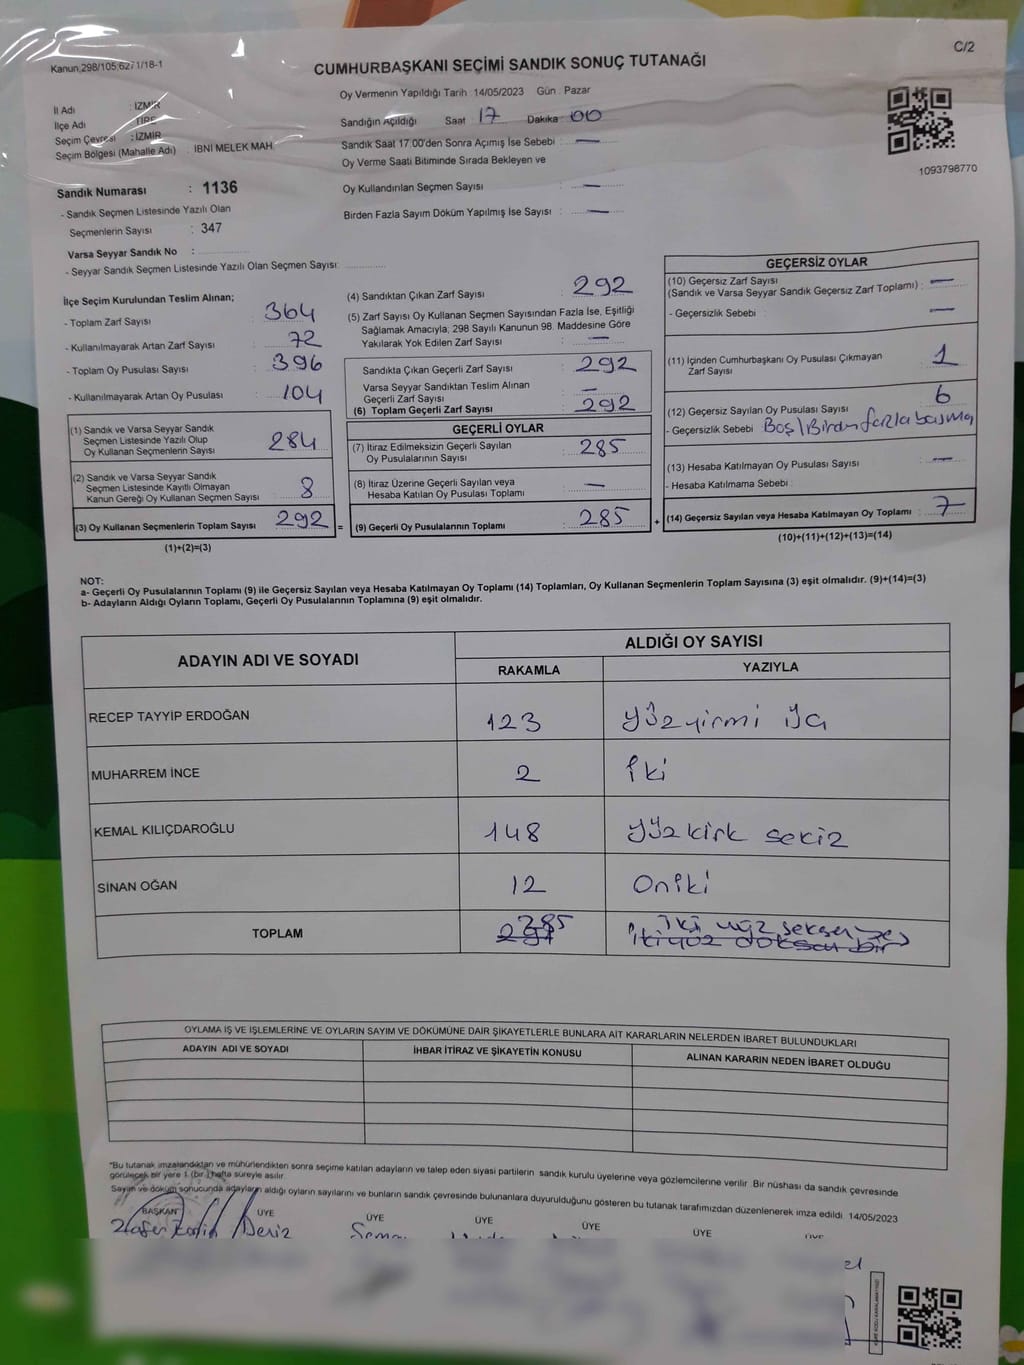 C/2
Kanun;298/105;6271/18-1
CUMHURBAŞKANI SEÇİMİ SANDIK SONUÇ TUTANAĞI
Oy Vermenin Yapıldığı Tarih :14/05/2023 Gün : Pazar
İl Adı : İZMİR
İlçe Adı : TİRE
Seçim Çevresi : İZMİR
Seçim Bölgesi (Mahalle Adı) : İBNİ MELEK MAH
Sandığın Açıldığı Saat 17 Dakika 00
Sandık Saat 17:00'den Sonra Açımış İse Sebebi : —
Oy Verme Saati Bitiminde Sırada Bekleyen ve
Oy Kullandırılan Seçmen Sayısı : —
Birden Fazla Sayım Döküm Yapılmış İse Sayısı : —
1093798770
Sandık Numarası : 1136
- Sandık Seçmen Listesinde Yazılı Olan
Seçmenlerin Sayısı : 347
Varsa Seyyar Sandık No :
- Seyyar Sandık Seçmen Listesinde Yazılı Olan Seçmen Sayısı:
İlçe Seçim Kurulundan Teslim Alınan;
- Toplam Zarf Sayısı : 364
- Kullanılmayarak Artan Zarf Sayısı : 72
- Toplam Oy Pusulası Sayısı : 396
- Kullanılmayarak Artan Oy Pusulası : 104
(1) Sandık ve Varsa Seyyar Sandık
Seçmen Listesinde Yazılı Olup
Oy Kullanan Seçmenlerin Sayısı : 284
(2) Sandık ve Varsa Seyyar Sandık
Seçmen Listesinde Kayıtlı Olmayan
Kanun Gereği Oy Kullanan Seçmen Sayısı : 8
(3) Oy Kullanan Seçmenlerin Toplam Sayısı : 292 =
(1)+(2)=(3)
(4) Sandıktan Çıkan Zarf Sayısı : 292
(5) Zarf Sayısı Oy Kullanan Seçmen Sayısından Fazla İse, Eşitliği
Sağlamak Amacıyla; 298 Sayılı Kanunun 98. Maddesine Göre
Yakılarak Yok Edilen Zarf Sayısı : —
Sandıkta Çıkan Geçerli Zarf Sayısı : 292
Varsa Seyyar Sandıktan Teslim Alınan
Geçerli Zarf Sayısı : —
(6) Toplam Geçerli Zarf Sayısı : 292
GEÇERLİ OYLAR
(7) İtiraz Edilmeksizin Geçerli Sayılan
Oy Pusulalarının Sayısı : 285
(8) İtiraz Üzerine Geçerli Sayılan veya
Hesaba Katılan Oy Pusulası Toplamı : —
(9) Geçerli Oy Pusulalarının Toplamı : 285 +
GEÇERSİZ OYLAR
(10) Geçersiz Zarf Sayısı
(Sandık ve Varsa Seyyar Sandık Geçersiz Zarf Toplamı) : —
- Geçersizlik Sebebi : —
(11) İçinden Cumhurbaşkanı Oy Pusulası Çıkmayan
Zarf Sayısı : 1
(12) Geçersiz Sayılan Oy Pusulası Sayısı : 6
- Geçersizlik Sebebi : Boş/Birden fazla basma
(13) Hesaba Katılmayan Oy Pusulası Sayısı : —
- Hesaba Katılmama Sebebi :
(14) Geçersiz Sayılan veya Hesaba Katılmayan Oy Toplamı : 7
(10)+(11)+(12)+(13)=(14)
NOT:
a- Geçerli Oy Pusulalarının Toplamı (9) ile Geçersiz Sayılan veya Hesaba Katılmayan Oy Toplamı (14) Toplamları, Oy Kullanan Seçmenlerin Toplam Sayısına (3) eşit olmalıdır. (9)+(14)=(3)
b- Adayların Aldığı Oyların Toplamı, Geçerli Oy Pusulalarının Toplamına (9) eşit olmalıdır.
ADAYIN ADI VE SOYADI ALDIĞI OY SAYISI
RAKAMLA YAZIYLA
RECEP TAYYİP ERDOĞAN 123 yüzyirmi
MUHARREM İNCE 2 İki
KEMAL KILIÇDAROĞLU 148 yüz kirk sekiz
SİNAN OĞAN 12 Oniki
TOPLAM 285 İki yüz seksen beş
291 İkiyüz doksan bir
OYLAMA İŞ VE İŞLEMLERİNE VE OYLARIN SAYIM VE DÖKÜMÜNE DAİR ŞİKAYETLERLE BUNLARA AİT KARARLARIN NELERDEN İBARET BULUNDUKLARI
ADAYIN ADI VE SOYADI İHBAR İTİRAZ VE ŞİKAYETİN KONUSU ALINAN KARARIN NEDEN İBARET OLDUĞU
*Bu tutanak imzalandıktan ve mühürlendikten sonra seçime katılan adayların ve talep eden siyasi partilerin sandık kurulu üyelerine veya gözlemcilerine verilir. Bir nüshası da sandık çevresinde
görülecek bir yere 1 (bir) hafta süreyle asılır.
Sayım ve döküm sonucunda adayların aldığı oyların sayılarını ve bunların sandık çevresinde bulunanlara duyurulduğunu gösteren bu tutanak tarafımızdan düzenlenerek imza edildi. 14/05/2023
BAŞKAN ÜYE ÜYE ÜYE ÜYE ÜYE ÜYE
Deniz